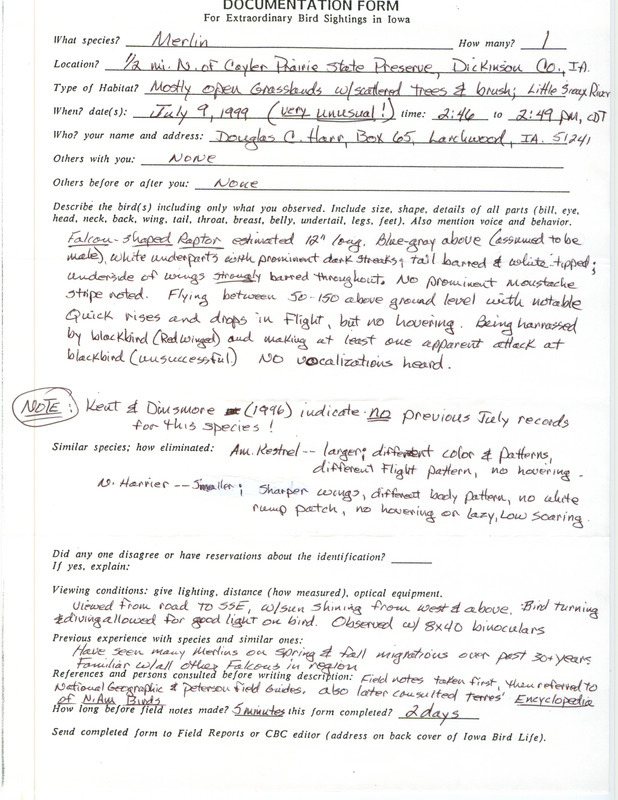 DOCUMENTATION FORM
For Extraordinary Bird Sightings in Iowa
What species? Merlin How many? 1
Location? 1/2 mi. N. of Cayler Prairie State Preserve, Dickinson Co., IA.
Type of Habitat? Mostly open Grasslands w/scattered trees & brush; Little Sioux River
When? date(s): July 9, 1999 (very unusual!) time: 2:46 to 2:49 PM, CDT
Who? your name and address: Douglas C. Harr, Box 65, Larchwood, IA. 51241
Others with you: NONE
Others before or after you: None
Describe the bird(s) including only what you observed. Include size, shape, details of all parts (bill, eye,
head, neck, back, wing, tail, throat, breast, belly, undertail, legs, feet). Also mention voice and behavior.
Falcon-shaped Raptor estimated 12" long. Blue-gray above (assumed to be
male), white underparts with prominent dark streaks; tail barred & white-tipped;
underside of wings strongly barred throughout. No prominent moustache
stripe noted. Flying between 50-150 above ground level with notable
Quick rises and drops in flight, but no hovering. Being harrassed
by blackbird (Redwinged) and making at least one apparent attack at
blackbird (unsuccessful) No vocalizations heard.
NOTE: Kent & Dinsmore (1996) indicate no previous July records
for this species!
Similar species; how eliminated: Am. Kestrel -- larger; different color & patterns,
different Flight pattern, no hovering.
N. Harrier -- Smaller; sharper wings, different body pattern, no white
rump patch, no hovering or lazy, low soaring.
Did any one disagree or have reservations about the identification?
If yes, explain:
Viewing conditions: give lighting, distance (how measured), optical equipment.
Viewed from road to SSE, w/sun shining from west & above. Bird turning
& diving allowed for good light on bird. Observed w/ 8x40 binoculars
Previous experience with species and similar ones:
Have seen many Merlins on spring & fall migrations over past 30+ years
Familiar w/all other Falcons in region
References and persons consulted before writing description: Field notes taken first, then referred to
National Geographic & Peterson Field Guides, also later consulted Terres' Encyclopedia
of N. Am. Birds
How long before field notes made? 5 minutes this form completed? 2 days
Send completed form to Field Reports or CBC editor (address on back cover of Iowa Bird Life).